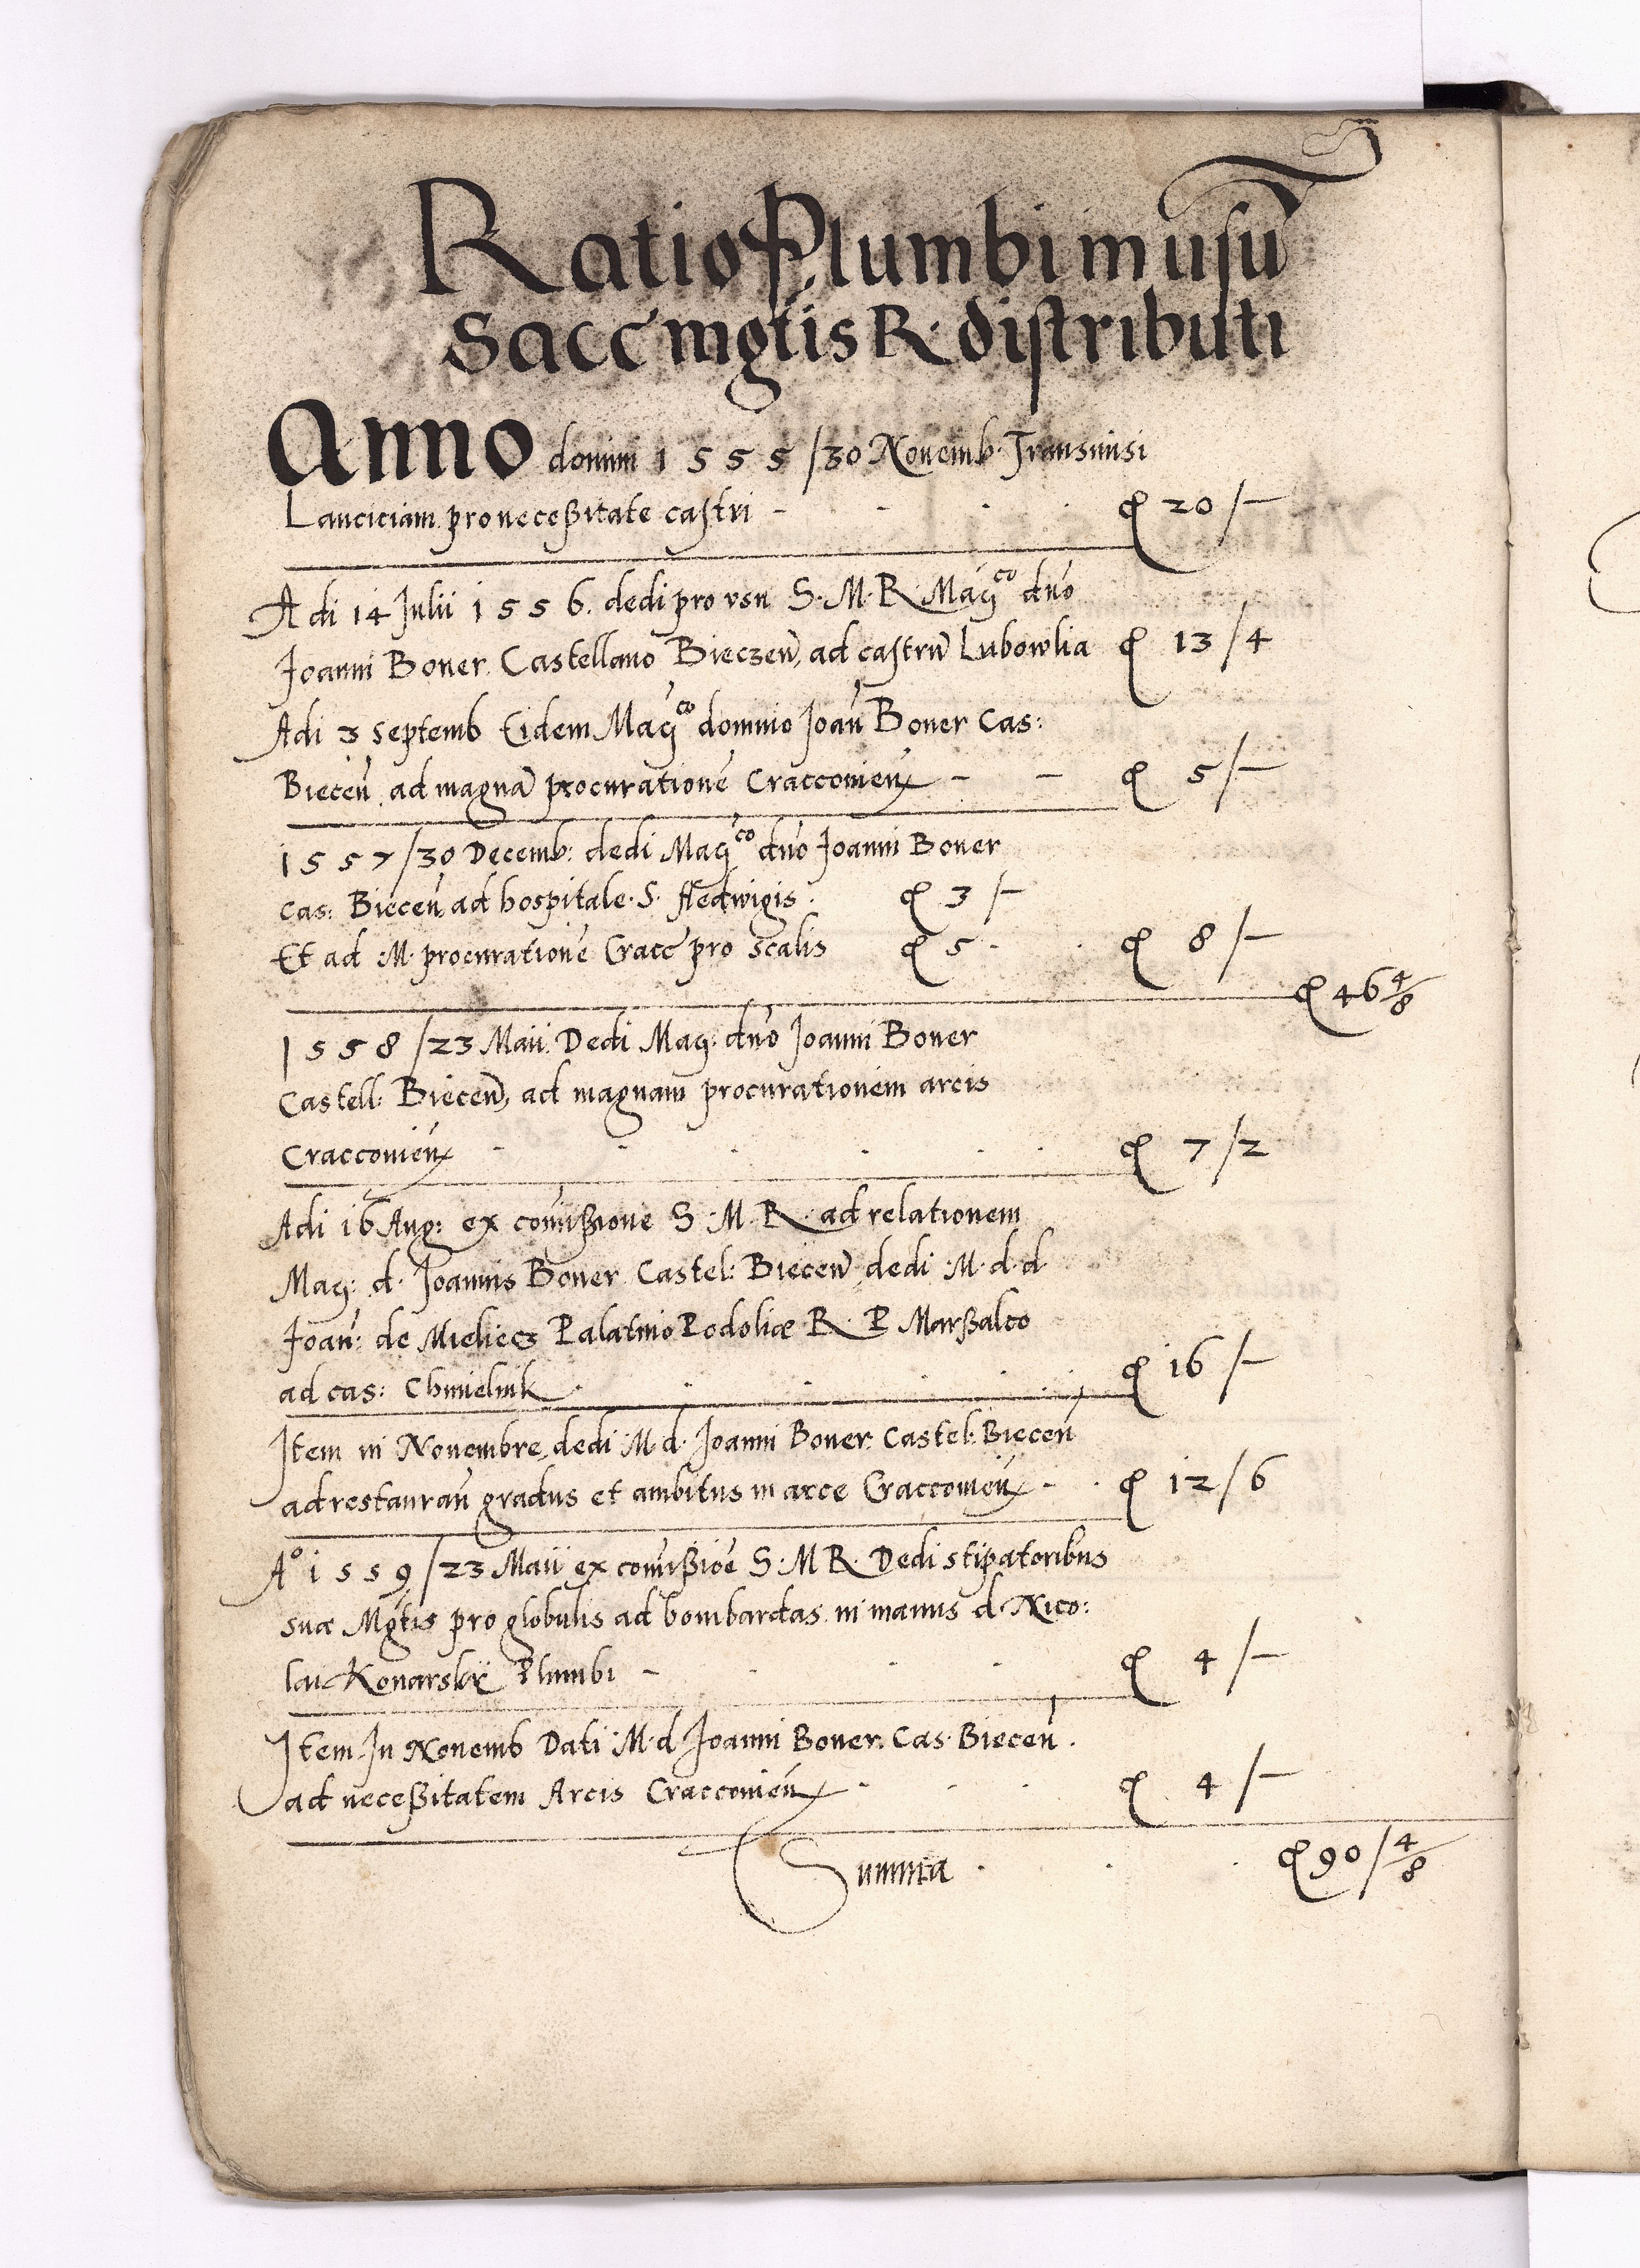 Ratio Plumbi in usū
Sacc̄ mg̃tis R. distributi
Anno domini 1555/30 Novemb. Transmisi
Lanciciam pro neceßitate castri - ꝗ 20/-
Adi 14 Julii 1556. dedi pro vsu S. M. R. Mag^co dn̄o
Joanni Boner Castellano Bieczen̄, ad castrū Lubowlia ꝗ 13/4
Adi 3 Septemb Eidem Mag^co domino Joan̄ Boner Cas:
Biecen̄ ad magnā procurationē Cracconien̄ - - ꝗ 5/-
1557/30 Decemb: dedi Mag^co dn̄o Joanni Boner
Cas: Biecen̄ ad hospitale. S. Hedwigis. ꝗ 3/-
Et ad .M. procurationē Cracc̄ pro scalis ꝗ 5. ꝗ 8/-
ꝗ 46 4/8
1558/23 Maii. Dedi Mag: dn̄o Joanni Boner
Castell: Biecen̄, ad magnam procurationem arcis
Cracconien̄ ꝗ 7/2
Adi 16 Aug: ex com̄ißione S. M. R. ad relationem
Mag: d. Joannis Boner Castel: Biecen̄ dedi .M. d. d.
Joan̄: de Mieliecz Palatino Podoliæ R. P Marßalco
ad cas: Chmielnik. ꝗ 16/-
Item in Novembre, dedi M. d. Joanni Boner Castel: Biecen̄
ad restauran̄ gradus et ambitus in arce Cracconien̄ . . ꝗ 12/6
A° 1559/23 Maii ex com̄ißiōe S. M R. Dedi stipatoribus
suæ Mg̃tis pro globulis ad bombardas in manus d. Nico:
lai Konarskÿ Plumbi - ꝗ 4/-
Item. In Novemb Dati M. d Joanni Boner. Cas. Biecen̄.
ad neceßitatem Arcis Cracconien̄ ꝗ 4/-
Summa . ꝗ 90/4/8